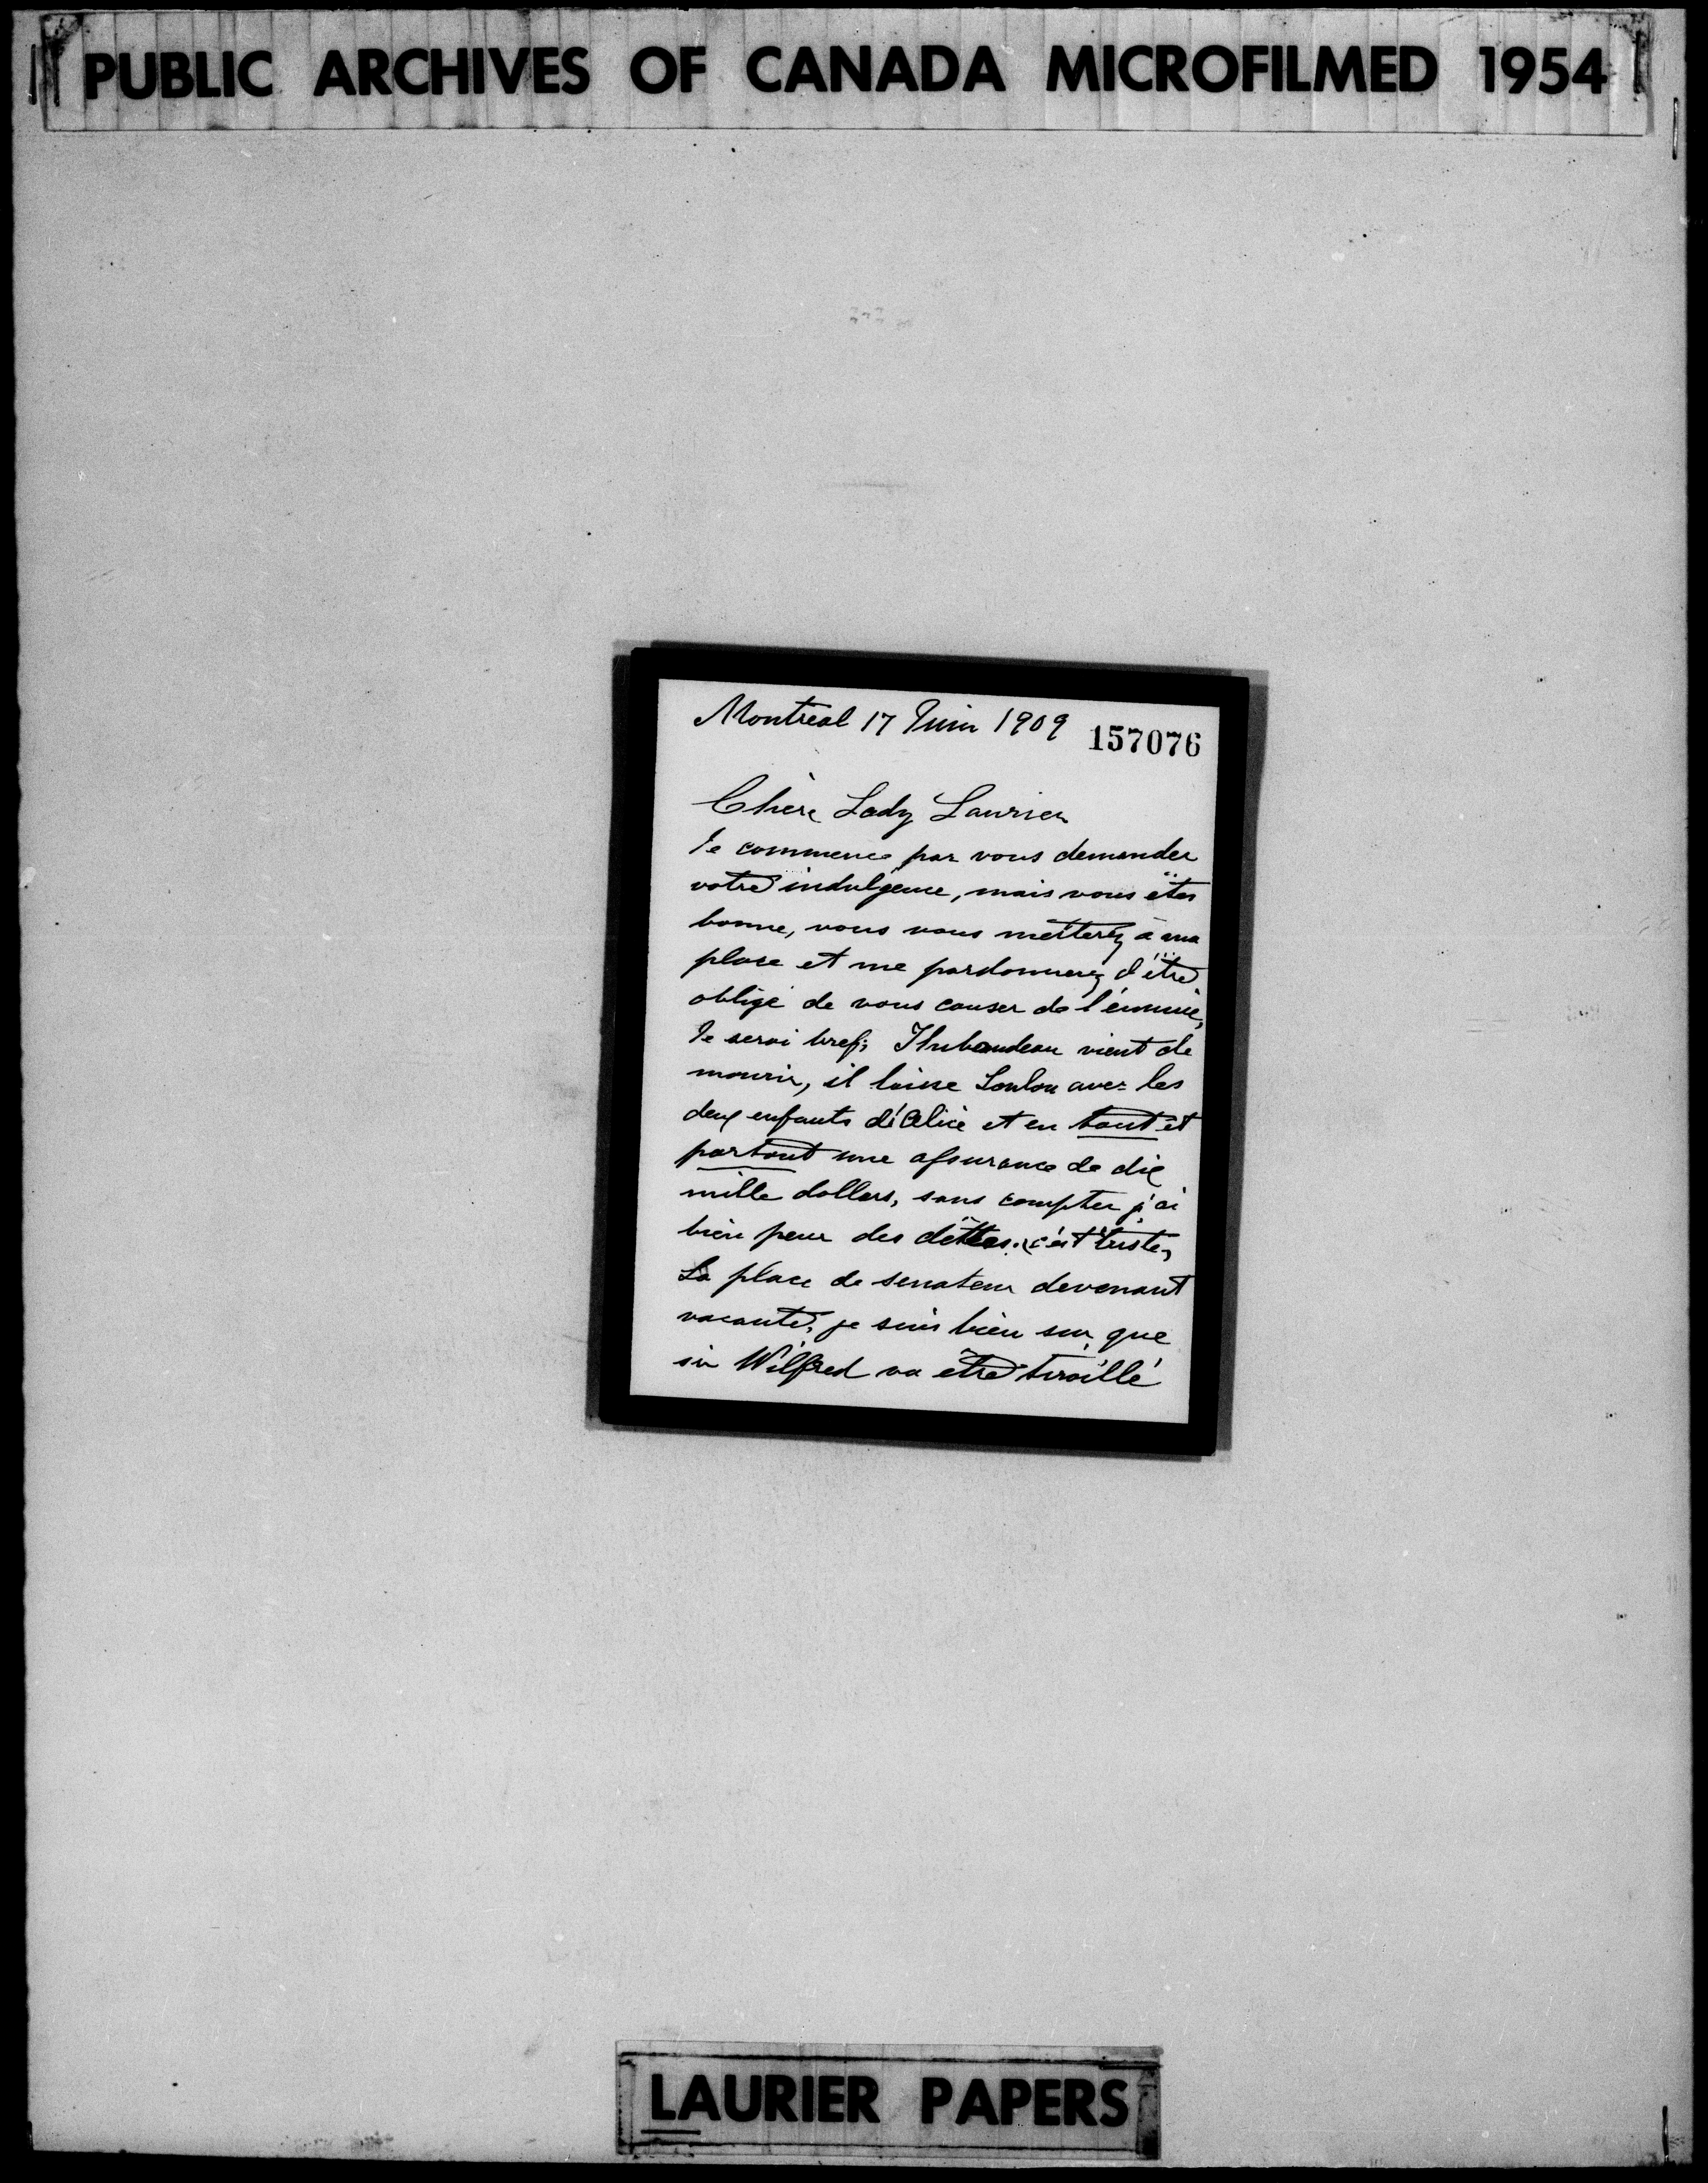 PUBLIC ARCHIVES OF CANADA MICROFILMED 1954
Montreal 17 Juin 1909
157076
Chère Lady Laurier
Je commence par vous demander
votre indulgence, mais vous êtes
bonne, vous vous metterez à ma
place et me pardonnerez d'être
obligé de vous causer de l'énnuie,
Je serai bref; Thibaudeau vient de
mourir, il laisse Loulou avec les
deux enfants d'Alice et en tout et
partout une assurance de dix
mille dollars, sans compter j'ai
bien peur des dêttes. c'est triste,
La place de senateur devenant
vacante, je suis bien sur que
sir Wilfred va être tiraillé
LAURIER PAPERS